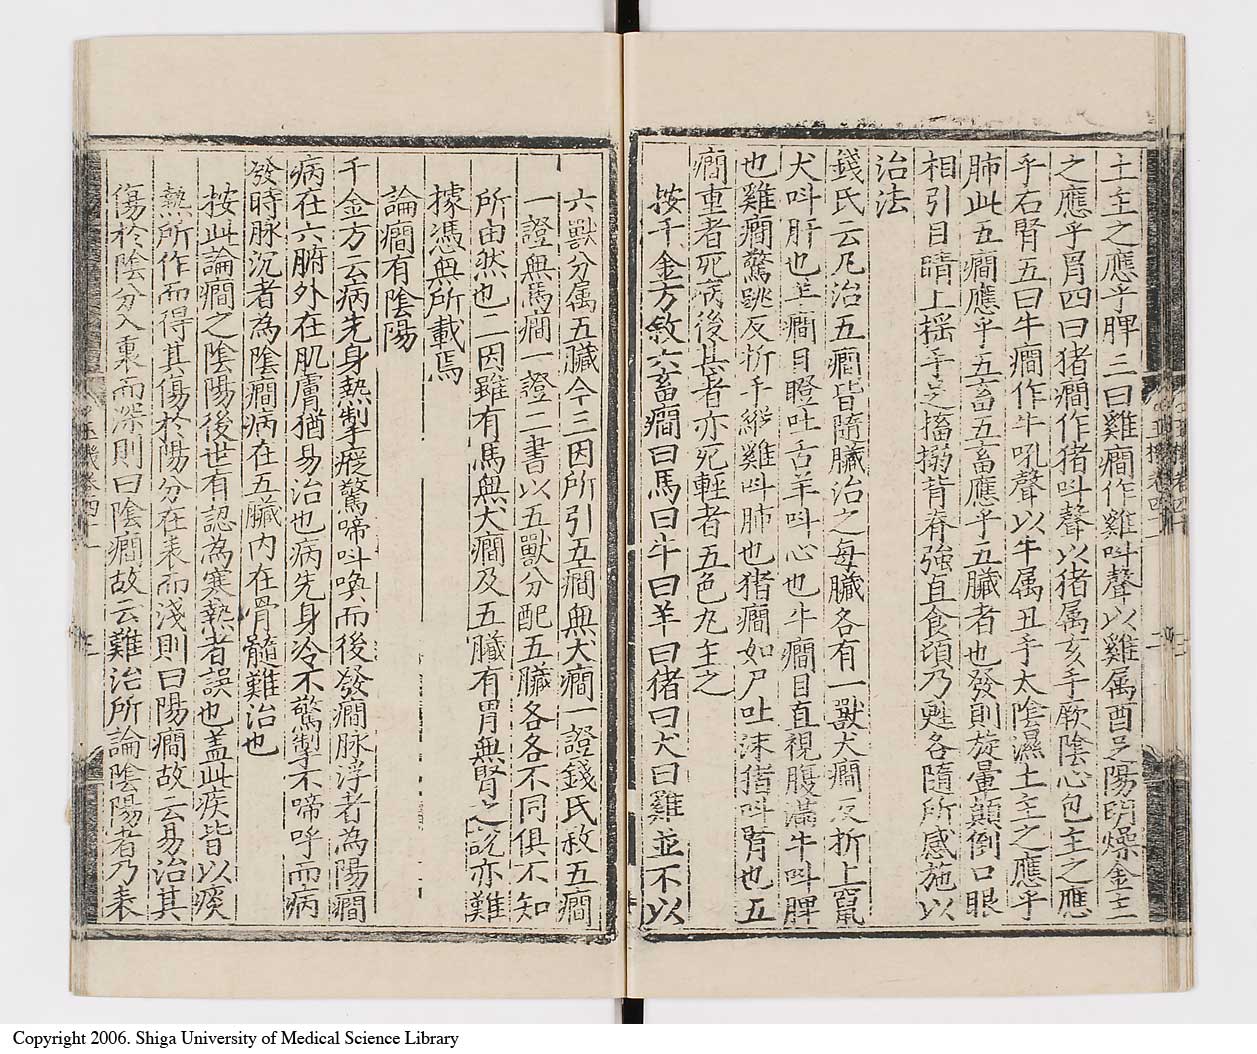 土主之應乎脾三曰雞癎作雞叫聲以雞属酉足陽明燥金主
之應乎胃四曰猪癎作猪叫聲以猪属亥手厥陰心包主之應
乎石腎五曰牛癎作牛吼聲以牛属丑手太陰濕土主之應乎
肺此五癎應乎五畜五畜應乎五臓者也發則旋暈顛倒口眼
相引目睛上揺手足搐搦背脊強直食頃乃甦各隨所感施以
治法
錢氏云凡治五癎皆隨臓治之每臓各有一獸犬癎反折上竄
犬叫肝也羊癎目瞪吐舌羊叫心也牛癎目直視腹滿牛叫脾
也雞癎驚跳反折手縱雞叫肺也猪癎如尸吐沫猪叫腎也五
癎重者死病後甚者亦死輕者五色丸主之
按千金方敘六畜癎曰馬曰牛曰羊曰猪曰犬曰雞並不以
六獸分属五臓今三因所引五癎無犬癎一證錢氏敘五癎
一證無馬癎一證二書以五獸分配五臓各各不同俱不知
所由然也二因雖有馬無犬癎及五臓有胃無腎之說亦難
據憑無所載焉
論癎有陰陽
千金方云病先身熱掣瘲驚啼叫喚而後發癎脉浮者為陽癎
病在六腑外在肌膚猶易治也病先身冷不驚掣不啼呼而病
發時脉沉者為陰癎病在五臓内在骨髓難治也
按此論癎之陰陽後世有認為寒熱者誤也盖此疾皆以痰
熱所作而得其傷於陽分在表而淺則曰陽癎故云易治其
傷於陰分入裏而深則曰陰癎故云難治所論陰陽者乃表
Copyright 2006. Shiga University of Medical Science Library